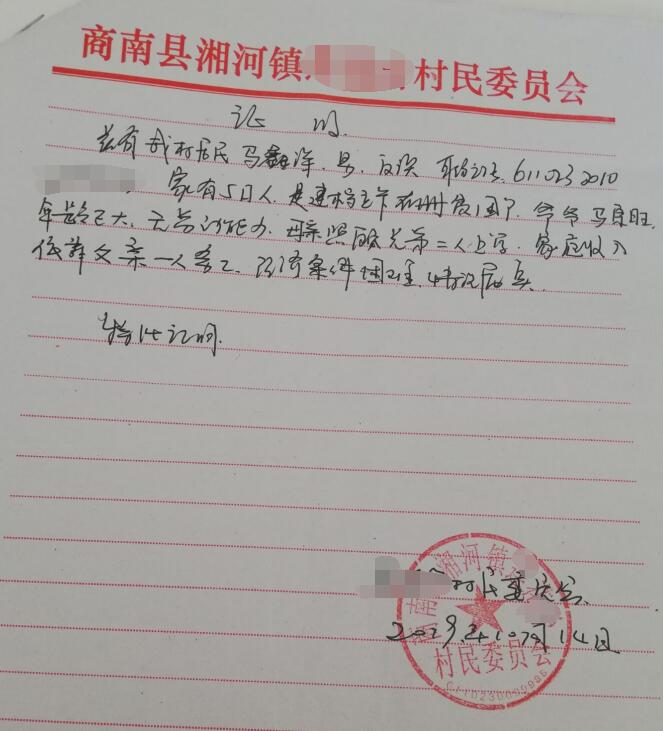 商南县湘河镇 村民委员会
证明
兹有我村居民马鑫洋,男,汉族 身份证号 611023 2010
家有5口人,是建档立卡在册贫困户,爷爷马良旺
年龄已大,无劳动能力,母亲照顾兄弟二人上学,家庭收入
依靠父亲一人务工,经济条件困难,情况属实.
特此证明.
村民委员会
2023年10月14日
商南县湘河镇
村民委员会